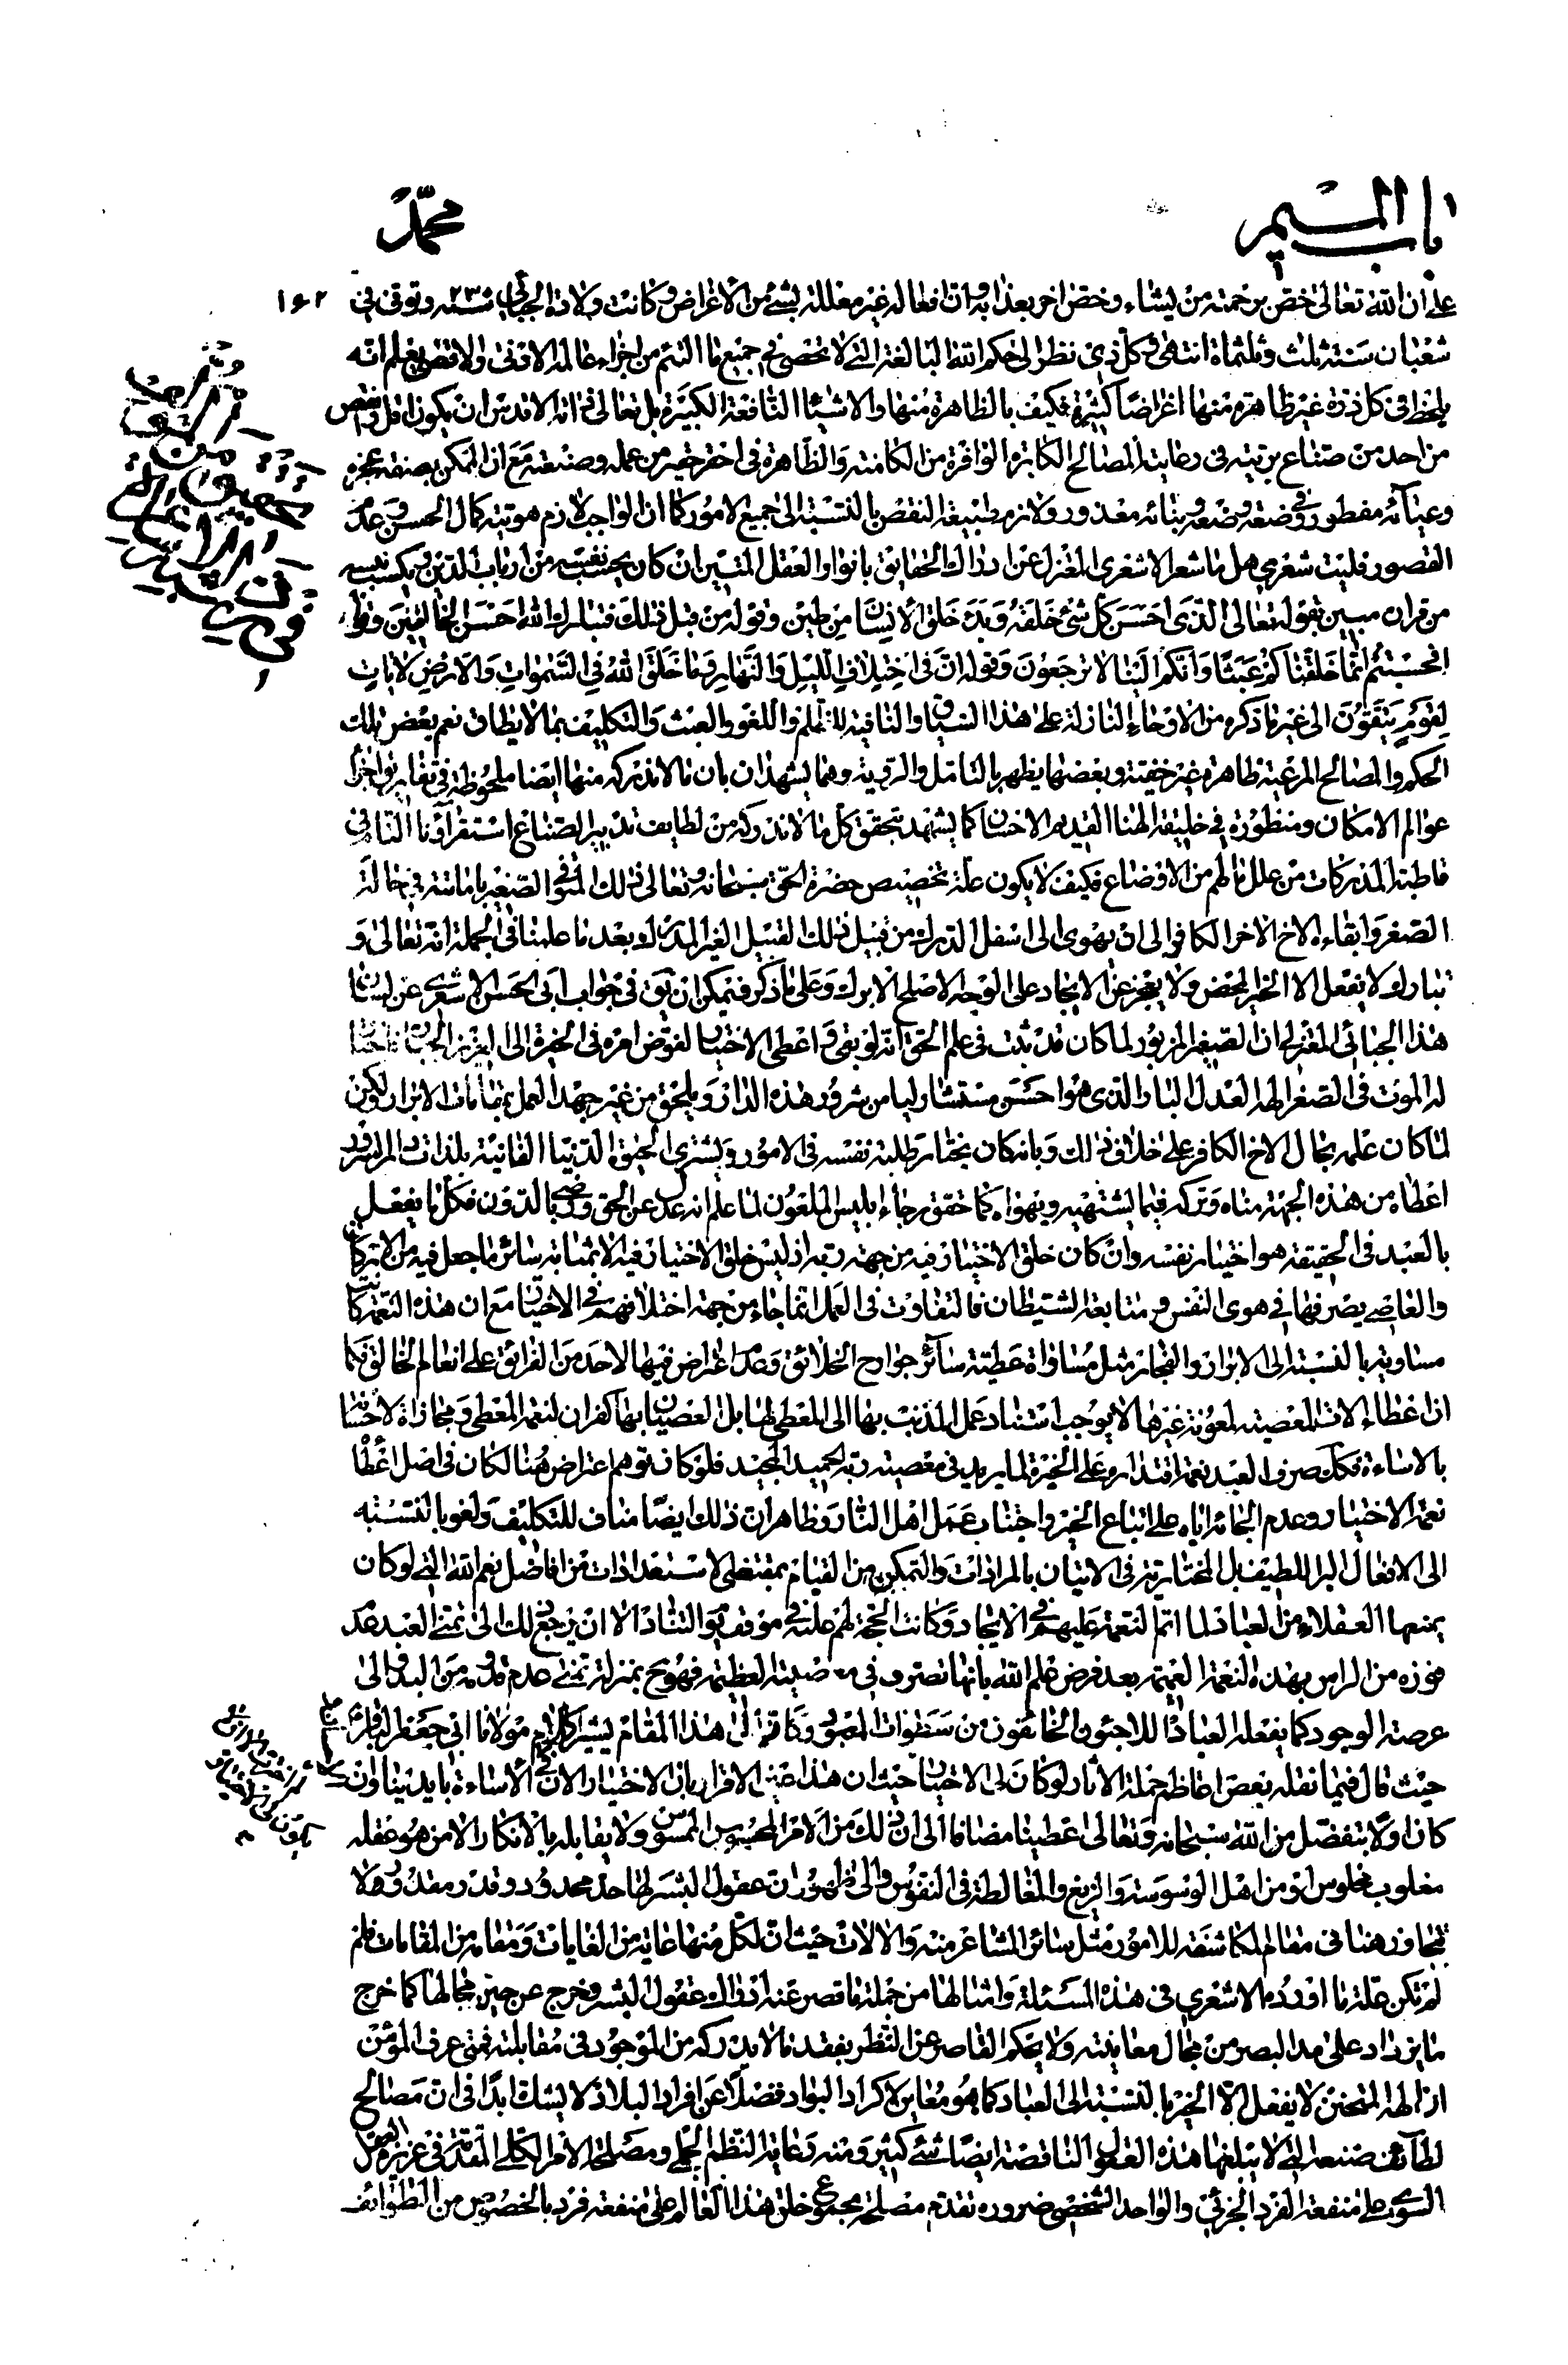 باب الميم
محمد
على ان الله تعالى خص برحمته من يشاء وخص اخر بعذابه وان افعاله غير معللة بشئ من الاغراض وكانت ولادة الجبائي سنة ٢٣٥ وتوفى فى
شعبان سنة ثلث وثلثمأة انتهى وكل ذى نظر الى حكم الله البالغة التى لا تحصى فى جميع ما التئم من اجزاء عالمه الادنى والاقصى يعلم انه
يلحظ فى كل ذرة غير ظاهرة منها اغراضا كثيرة فكيف بالظاهرة منها والاشياء النافعة الكبيرة بل تعالى ذاته الاقدس ان يكون اقل وانقص
من احد من صناع بريته فى رعاية المصالح الكابرة الوافرة من الكامنة والظاهرة فى احقر حقير من عمله وصنعته مع ان الممكن بصنعة عجزه
وعيائه مفطور فى وضعه وضعف بنائه معذور ولازم طبيعة النقص بالنسبة الى جميع الامور كما ان الواجب لازم هويته كمال الحسن وعدم
القصور فليت شعرى هل ما شعر الاشعرى المغزل عن ادراك الحقايق بانوار العقل المتين ان كان يحسب نفسه من ارباب الدين ويكسب دينه
من قران مبين بقوله تعالى الذى احسن كل شئ خلقه وبدء خلق الانسان من طين وقوله من قبل ذلك فتبارك الله احسن الخالقين وقوله
افحسبتم انما خلقناكم عبثا وانكم الينا لا ترجعون وقوله ان فى اختلاف الليل والنهار وما خلق الله فى السموات والارض لايات
لقوم يتقون الى غير ما ذكره من الاوحاء النازلة على هذا السياق والنافية للظلم واللغو والعبث والتكليف بما لا يطاق نعم بعض تلك
الحكم والمصالح المرعية ظاهرة غير خفية وبعضها يظهر بالتامل والروية وهما يشهدان بان ما لا ندركه منها ايضا ملحوظة فى تقادير اجزاء
عوالم الامكان ومنظورة فى خليقة الهنا القديم الاحسان كما يشهد بتحقق كل ما لا ندركه من لطايف تدبير الصناع استقراؤنا التام فى
قاطبة المدركات من علل ما لهم من الاوضاع فكيف لا يكون علة تخصيص حضرة الحق سبحانه وتعالى ذلك المتوفى الصغير باماتته فى حالة
الصغر وابقاءه الاخ الاخر الكافر الى ان يهوى الى اسفل الدرك من قبيل ذلك القبيل الغير المدرك بعد ما علمنا فى الجملة انه تعالى و
تبارك لا يفعل الا الخير المحض ولا يعجز عن الايجاد على الوجه الاصلح الابرك وعلى ما ذكر فيمكن ان يق فى جواب ابى الحسن الاشعرى عن لسان
هذا الجبائى المعتزلى ان الصغير المزبور لما كان قد ثبت فى علم الحق انه لو بقى واعطى الاختيار لفوض امره فى الخيرة الى العزيز الجبار فاختار
له الموت فى الصغر الهه العدل البار الذى هو احسن مستشار ليامن شرور هذه الدار ويلحق من غير جهد العمل بمقامات الابرار ولكن
لما كان علمه بحال الاخ الكافر على خلاف ذلك وبانه كان يختار طلبة نفسه فى الامور ويشترى الحيوة الدنيا الفانية بلذات دار السرور
اعطاه من هذه الجهة مناه وتركه فيما يشتهيه ويهواه كما حقق رجاء ابليس الملعون لما علم انه عدل عن الحق ورضى بالدون فكل ما يفعل
بالعبد فى الحقيقة هو اختيار نفسه وان كان خلق الاختيار فيه من جهة ربه اذ ليس خلق الاختيار فيه الا بمثابة سائر ما جعل فيه من الابركات
والعاصى يصرفها فى هوى النفس ومتابعة الشيطان فالتفاوت فى العمل انما جاء من جهة اختلافهم فى الاختيار مع ان هذه النعمة كانت
مساوية بالنسبة الى الابرار والفجار مثل مساواة عطية سائر جوارح الخلائق وعدم اعتراض فيها لاحد من الفرائق على انعام الخالق فكما
ان عطاء الات المعصية لمعونة غيرها لا يوجب استناد عمل المذنب بها الى المعطى لها بل العصيان بها كفران لنعم المعطى ومجازاة لاحسانه
بالاساءة فكك صرف العبد نعمة اقتداره على الخيرة لما يريد فى معصية ربه الحميد المجيد فلو كان توهم اعتراض هنا لكان فى اصل اعطاء
نعمة الاختيار وعدم الجائه اياه على اتباع الخير واجتناب عمل اهل النار وظاهر ان ذلك ايضا مناف للتكليف ولغو بالنسبة
الى الافعال البر اللطيف بل المختارية فى الاتيان بالمرادات والتمكن من القيام بمقتضى الاستعدادات من افاضل نعم الله التى لو كان
يمنعها العقلاء من العباد لما اتم النعمة عليهم فى الايجاد وكانت الحجة لهم عليه فى موقف يوم التناد الا ان يرجع ذلك الى تمنى العبد عدم
فوزه من الراس بهذه النعمة العميمة بعد فرض علم الله بانها تصرف فى معصيته العظيمة فهو ح بمنزلة تمنى عدم قدومه من البدو الى
عرصة الوجود كما يفعله العباد اللاجئون الخائفون من سطوات المعبود وكانما الى هذا المقام يشير كلام مولانا ابى جعفر الباقر
حيث قال فيما نقله بعض افاظم حملة الاثار لو كان لى الاختيار حيث ان هذا عين الاقرار بان الاختيار الان فى الاساءة بايدينا وان
كان اولا بتفضل من الله سبحانه وتعالى اعطينا مضافا الى ان ذلك من الامر المحسوس الملموس ولا يقابله بالانكار الا من هو عقله
مغلوب مخلوس او من اهل الوسوسة والزيغ والمغالطة فى النفوس والى ظهور ان عقول البشر لها حد محدود وقدر مقدر ولا
تجاوز هنا فى مقام المكاشفة للامور مثل سائر المشاعر منه والالات حيث ان لكل منها غاية من الغايات ومقامه من المقامات فلم
لم تكن علة ما اورده الاشعرى فى هذه المسئلة وامثالها من جملة ما قصر عنه ادراك عقول البشر وخرج عن حيز مجالها كما خرج
ما يزداد على مد البصر من مجال معاينته ولا يحكم القاصر عن النظر بفقد ما لا يدركه من الموجود فى مقابلته فمتى عرف المؤمن
ان الهه الممتحن لا يفعل الا الخير بالنسبة الى العباد كما هو معاين لاكراد البواد فضلا عن افراد البلاد لا يشك ابدا فى ان مصالح
لطائف صنعه التى لا يبلغها هذه العقول الناقصة ايضا شئ كثير ومنه رعاية النظم الجملى ومصلحة الامر الكلى المقدمة فى غريزة العقل
السوى على منفعة الفرد الجزئى والواحد الشخصى ضرورة تقدم مصلحة مجموع خلق هذا العالم على منفعة فرد بالخصوص من الطوائف